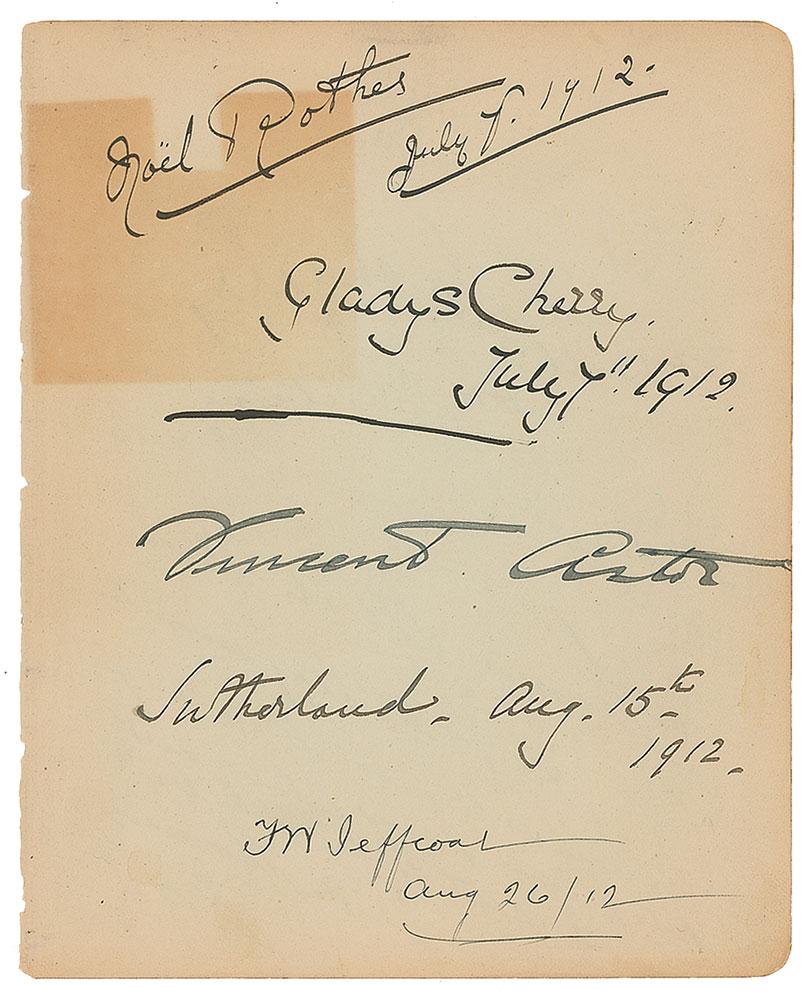 Noël Rothes
July 7. 1912.
Gladys Cherry.
July 7" 1912.
Vincent Astor
Sutherland. Aug. 15th
1912.
FW Jeffcoat
Aug 26/12